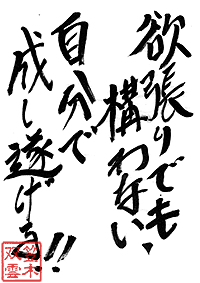 欲張りでも
構わない、
自分で
成し遂げる!!
鈴木
双雲